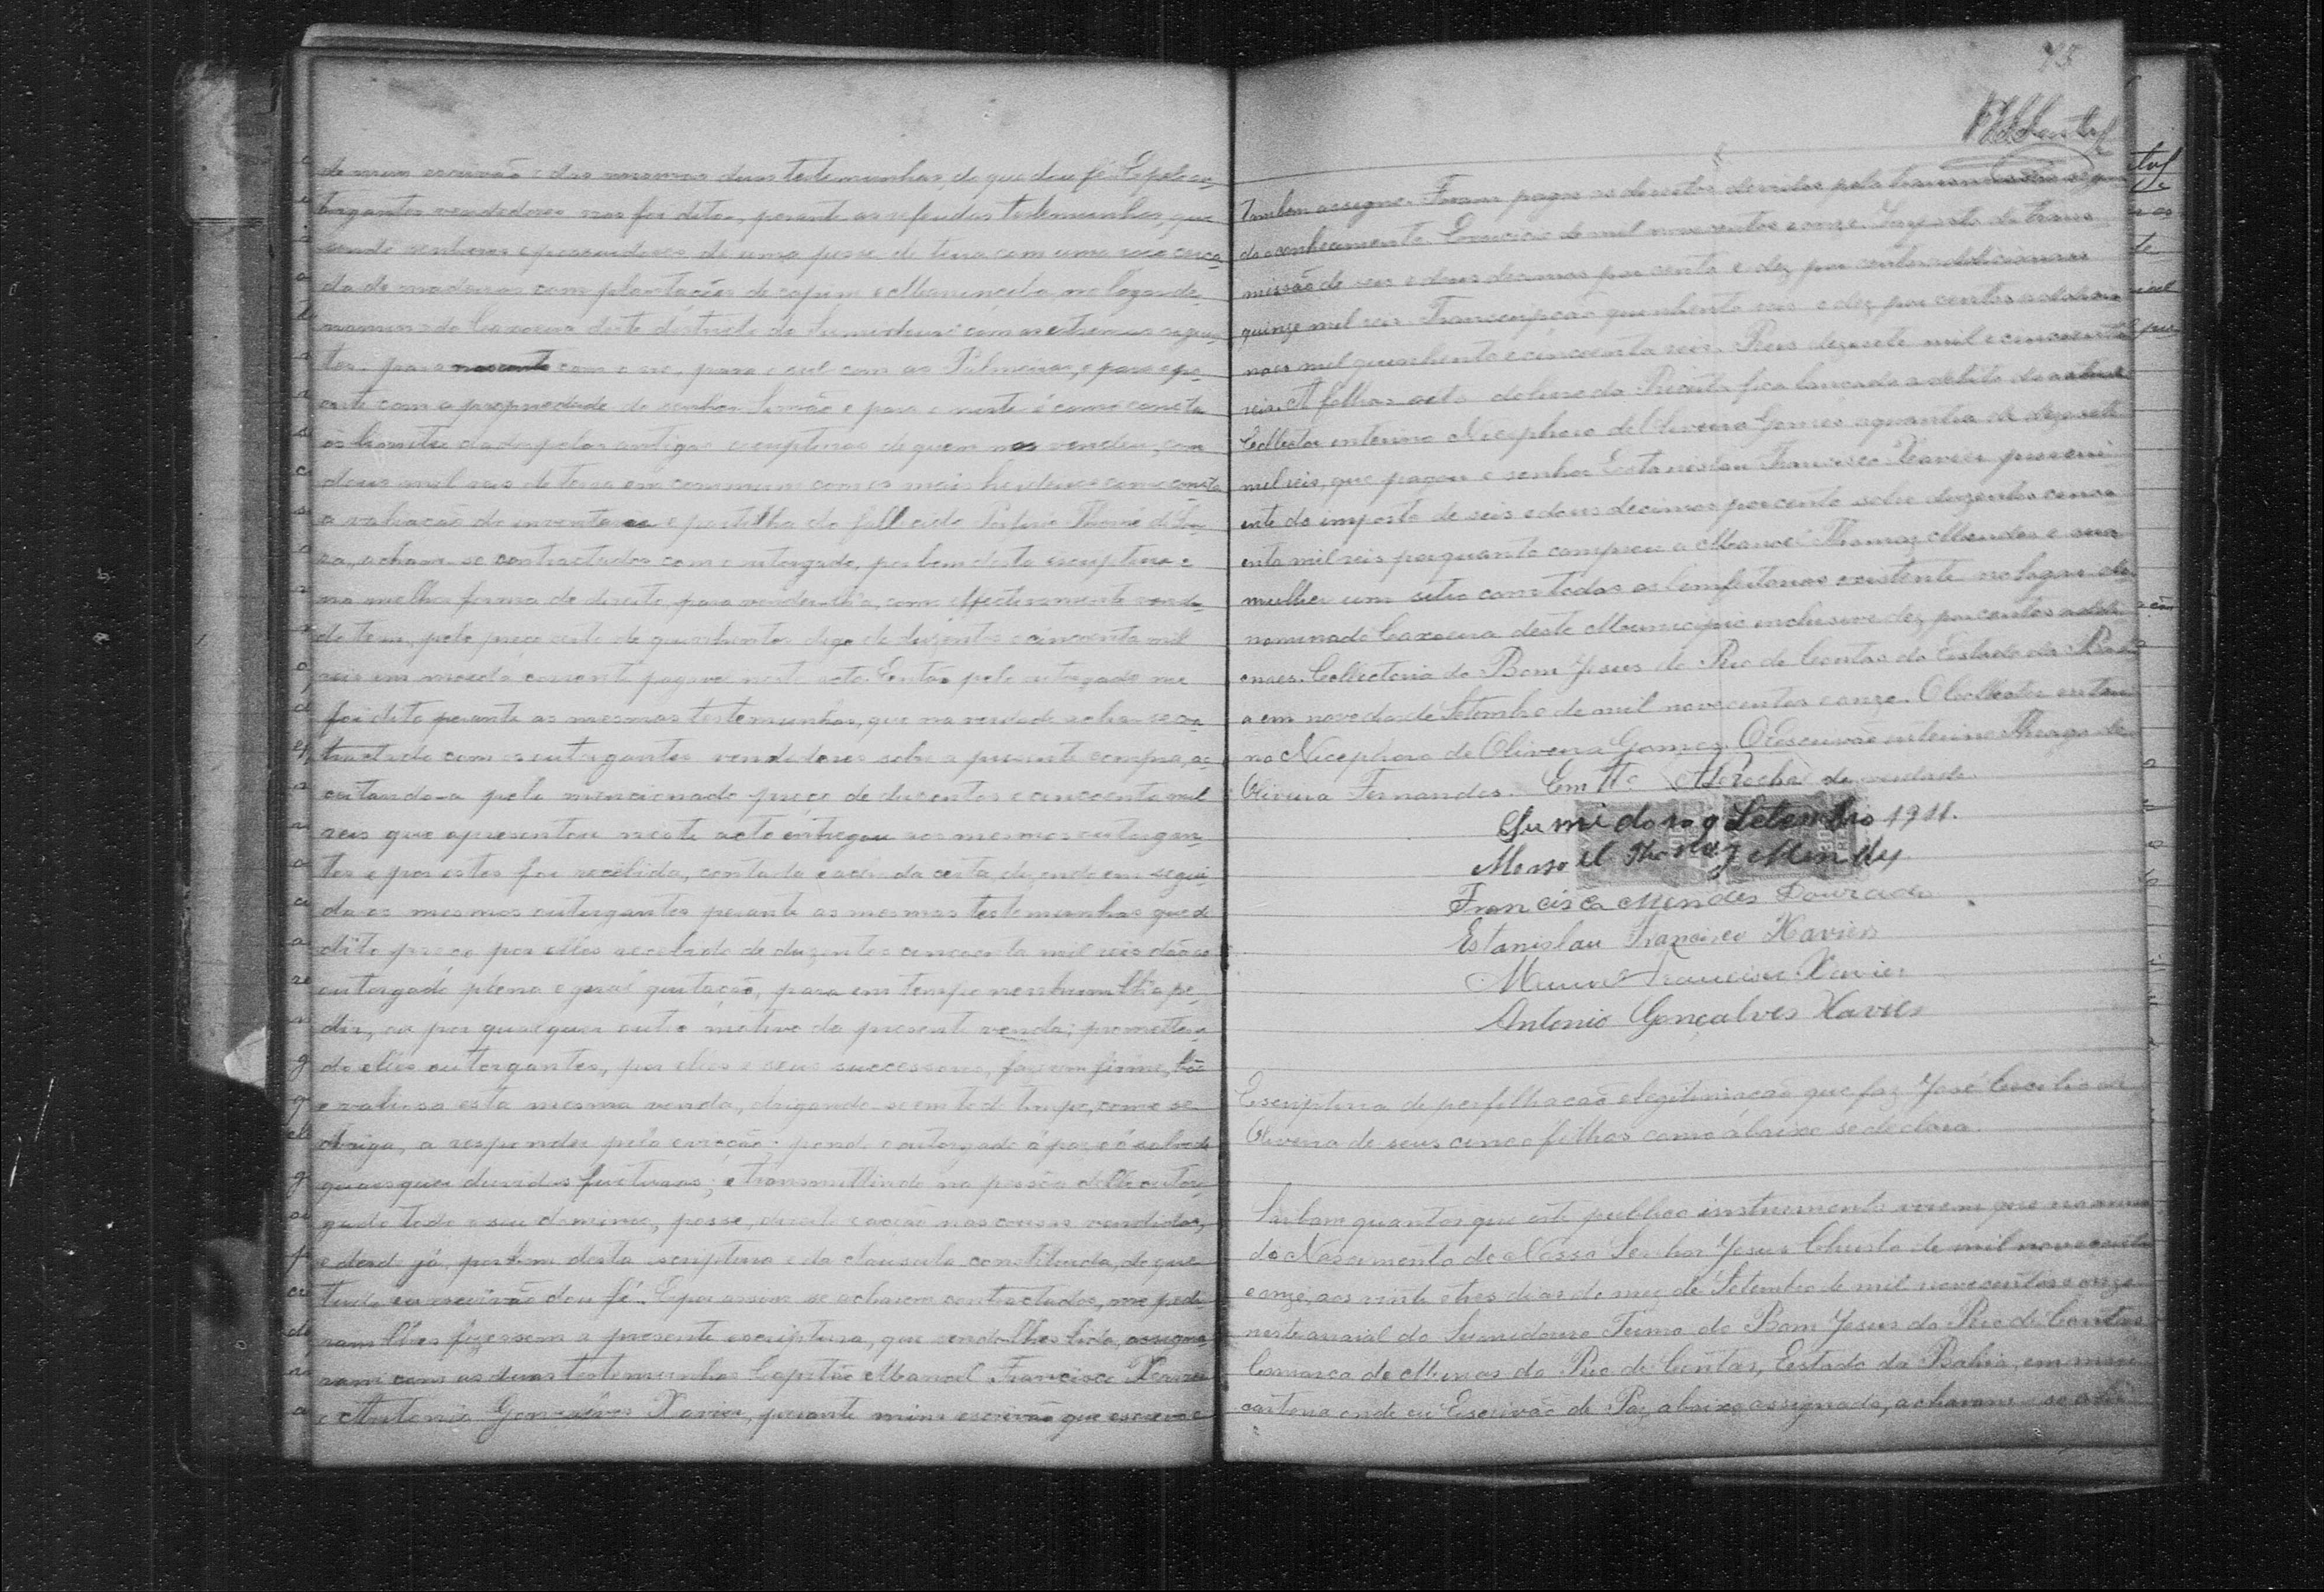 de mim escrivão e das mesmas duas testemunhas, do que dou fé. E pelos ou-
torgantes vendedores nos foi dito, perante as referidas testemunhas, que
sendo senhores e possuidores de uma posse de terra com uma roça cerca-
da de madeiras com plantações de capim e Maniçoba no logar de-
nominado Caxoeira deste districto do Sumidouro com os extremos seguin-
tes. para nascente com o rio, para o sul com as Palmeiras, e para o po-
ente com a propriedade do senhor Simão e para o norte é como consta
os limites dados pelas antigas escripturas de quem nos vendeu, com
dous mil reis de terra em commum com os mais herdeiros como consta
a valiação do inventario e partilha do fallecido Porfirio Thomé de
acham-se contractados com o outorgado, por bem desta escriptura e
na melhor forma de direito, para vender-lh'a, como effectivamente vendi-
do tem, pelo preço certo de quinhentos digo de duzentos e cincoenta mil
reis em moeda corrente pagavel neste acto. Então pelo outorgado me
foi dito perante as mesmas testemunhas, que na verdade acha-se con-
tractado com os outorgantes vendedores sobre a presente compra, ac-
ceitando-a pelo mencionado preço de duzentos e cincoenta mil
reis que apresentou neste acto entregou aos mesmos outorgan-
tes e por estes foi recebida, contada e achada certa, dizendo em segui-
da os mesmos outorgantes perante as mesmas testemunhas que do
dito preço por elles recebido de duzentos cincoenta mil reis dão ao
outorgado plena e geral quitação, para em tempo nenhum lh'o pe-
dir, ou por qualquer outro motivo da presente venda; prometten-
do elles outorgantes, por elles e seus successores, fazerem firme, bôa
e valiosa esta mesma venda, obrigando-se em todo tempo, como se
obriga, a responder pela evicção; pondo o outorgado á paz e á salvo de
quaesquer duvidas futuras; e transmittindo na pessôa delle outor-
gado todo o seu dominio, posse, direito e acção nas cousas vendidas,
e desde já, por bem desta escriptura e da clausula constituida, do que
tudo eu escrivão dou fé. E por assim se acharem contractados, me pedi-
ram lhes fizessem a presente escriptura, que sendo-lhes lida, assigna-
ram com as duas testemunhas Capitão Manoel Francisco Xavier
e Antonio Gonçalves Xavier, perante mim escrivão que escrevi e
75
tambem assigno. Foram pagos os direitos devidos pela transmissão segun-
do o conhecimento. Exercicio de mil novecentos e onze. Imposto de trans-
missão de seis e dous decimos por cento e dez por centos addicionaes
quinze mil reis. Transcripção quinhentos reis e dez por centos addicio-
naes mil quinhentos e cincoenta reis. Reis dezesete mil e cincoenta
reis. A folhas oito do livro da Receita fica lançado a debito do actual
Collector interino Nicephoro de Oliveira Gomes a quantia de dezesete
mil reis, que pagou o senhor Estanislau Francisco Xavier proveni-
ente do imposto de seis e dous decimos por cento sobre duzentos cinco-
enta mil reis porquanto comprou a Manoel Thomaz Mendes e sua
mulher um sitio com todas as bemfeitorias existente no logar de-
nominado Caxoeira deste Municipio inclusive dez por centos addici-
onaes. Collectoria do Bom Jesus do Rio de Contas do Estado da Bahi-
a em nove dias de Setembro de mil novecentos e onze. O Collector interi-
no Nicephoro de Oliveira Gomes. O Escrivão interino Thiago de
Oliveira Fernandes. Em tto Rocha de verdade.
Sumidoro 9 Setembro 1911.
Manoel Thomaz Mendes
Francisca Mendes Dourado
Estanislau Francisco Xavier
Manoel Francisco Xavier
Antonio Gonçalves Xavier
Escriptura de perfilhação e legitimação que faz José Cecilio de
Oliveira de seus cinco filhos como abaixo se declara.
Saibam quantos que este publico instrumento virem que no anno
do Nascimento de Nosso Senhor Jesus Christo de mil novecentos
e onze, aos vinte e tres dias do mez de Setembro de mil novecentos e onze
neste arraial do Sumidouro Termo do Bom Jesus do Rio de Contas
Comarca de Minas do Rio de Contas, Estado da Bahia, em meu
cartorio onde eu Escrivão de Paz, abaixo assignado, acharam-se